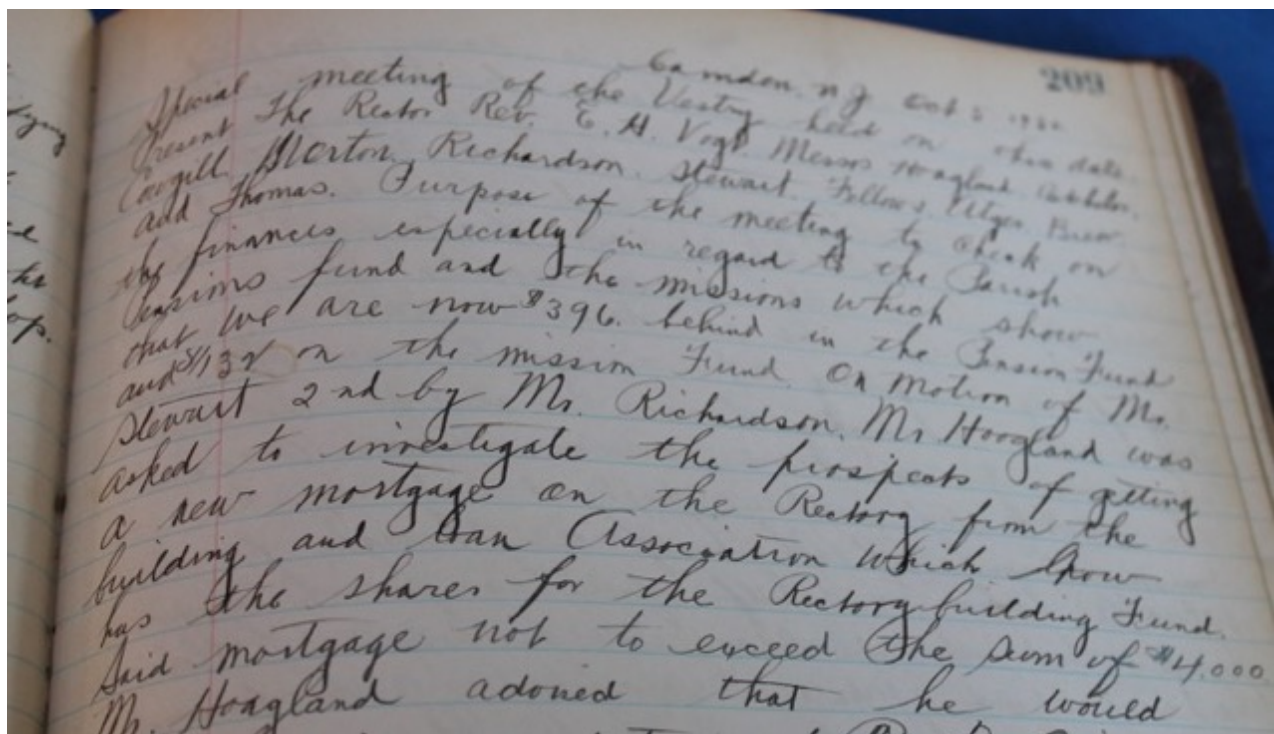 209
Camden. N J Oct 5
Special meeting of the Vestry held on this date
Present The Rector Rev. E. H. Vogt. Messrs Hoagland
Cowgill Merton, Richardson. Stewart. Fellows
and Thomas. Purpose of the meeting to check on
the finances especially in regard to the Parish
Pensions fund and the missions which show
that we are now $396. behind in the Pension Fund
and $132 on the mission Fund. On motion of Mr.
Stewart 2nd by Mr. Richardson. Mr Hoagland was
asked to investigate the prospects of getting
a new mortgage on the Rectory from the
building and Loan Association which know
has the shares for the Rectory building Fund.
Said mortgage not to exceed the sum of $4.000
Mr. Hoagland that he would